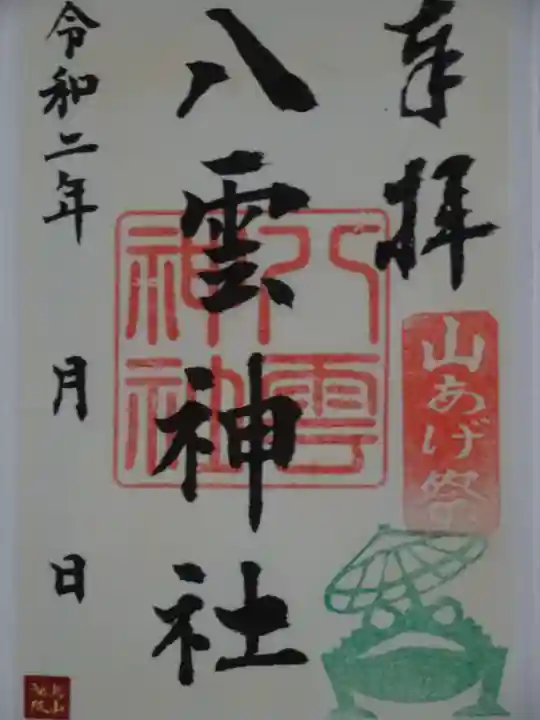 奉拝
山あげ祭
八雲神社
八雲神社
令和二年 月 日